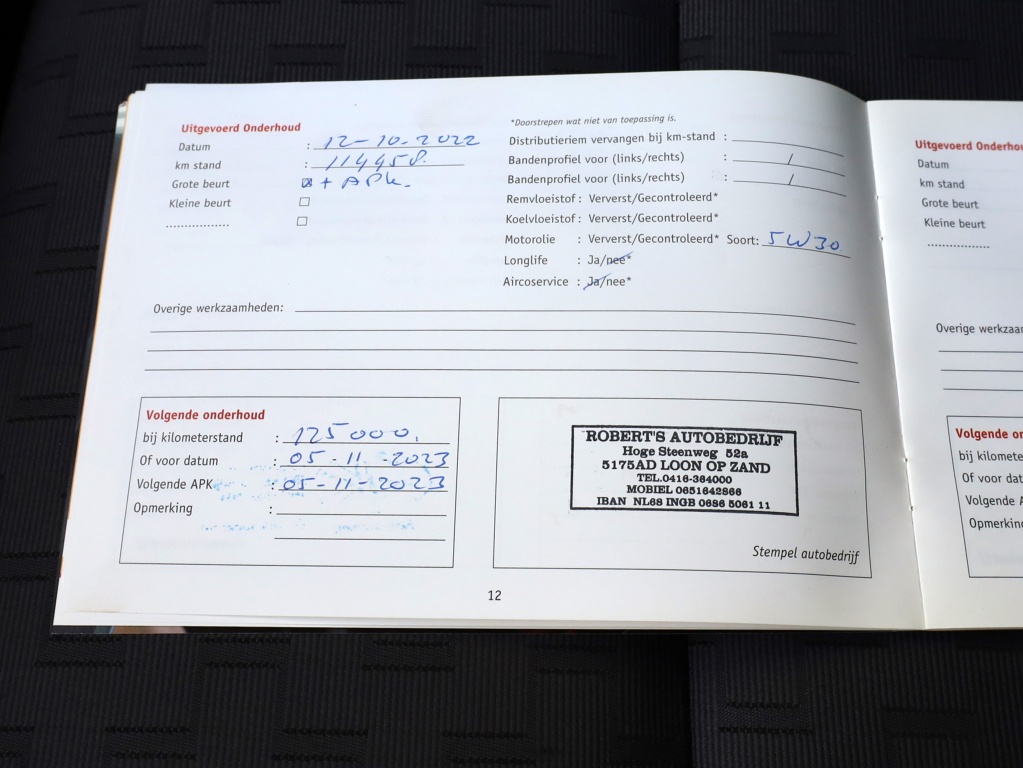 Uitgevoerd Onderhoud
Datum : 12-10-2022
km stand : 114458.
Grote beurt ☒ + APK.
Kleine beurt ☐
................. ☐
*Doorstrepen wat niet van toepassing is.
Distributieriem vervangen bij km-stand :
Bandenprofiel voor (links/rechts) : /
Bandenprofiel voor (links/rechts) : /
Remvloeistof : Ververst/Gecontroleerd*
Koelvloeistof : Ververst/Gecontroleerd*
Motorolie : Ververst/Gecontroleerd* Soort: 5W30
Longlife : Ja/nee*
Aircoservice : Ja/nee*
Overige werkzaamheden:
Volgende onderhoud
bij kilometerstand : 125000.
Of voor datum : 05-11-2023
Volgende APK : 05-11-2023
Opmerking :
ROBERT'S AUTOBEDRIJF
Hoge Steenweg 52a
5175AD LOON OP ZAND
TEL.0416-364000
MOBIEL 0651642866
IBAN NL68 INGB 0686 5061 11
Stempel autobedrijf
12
Uitgevoerd Onderhou
Datum
km stand
Grote beurt
Kleine beurt
.................
Overige werkzaa
Volgende on
bij kilomete
Of voor dat
Volgende A
Opmerkin